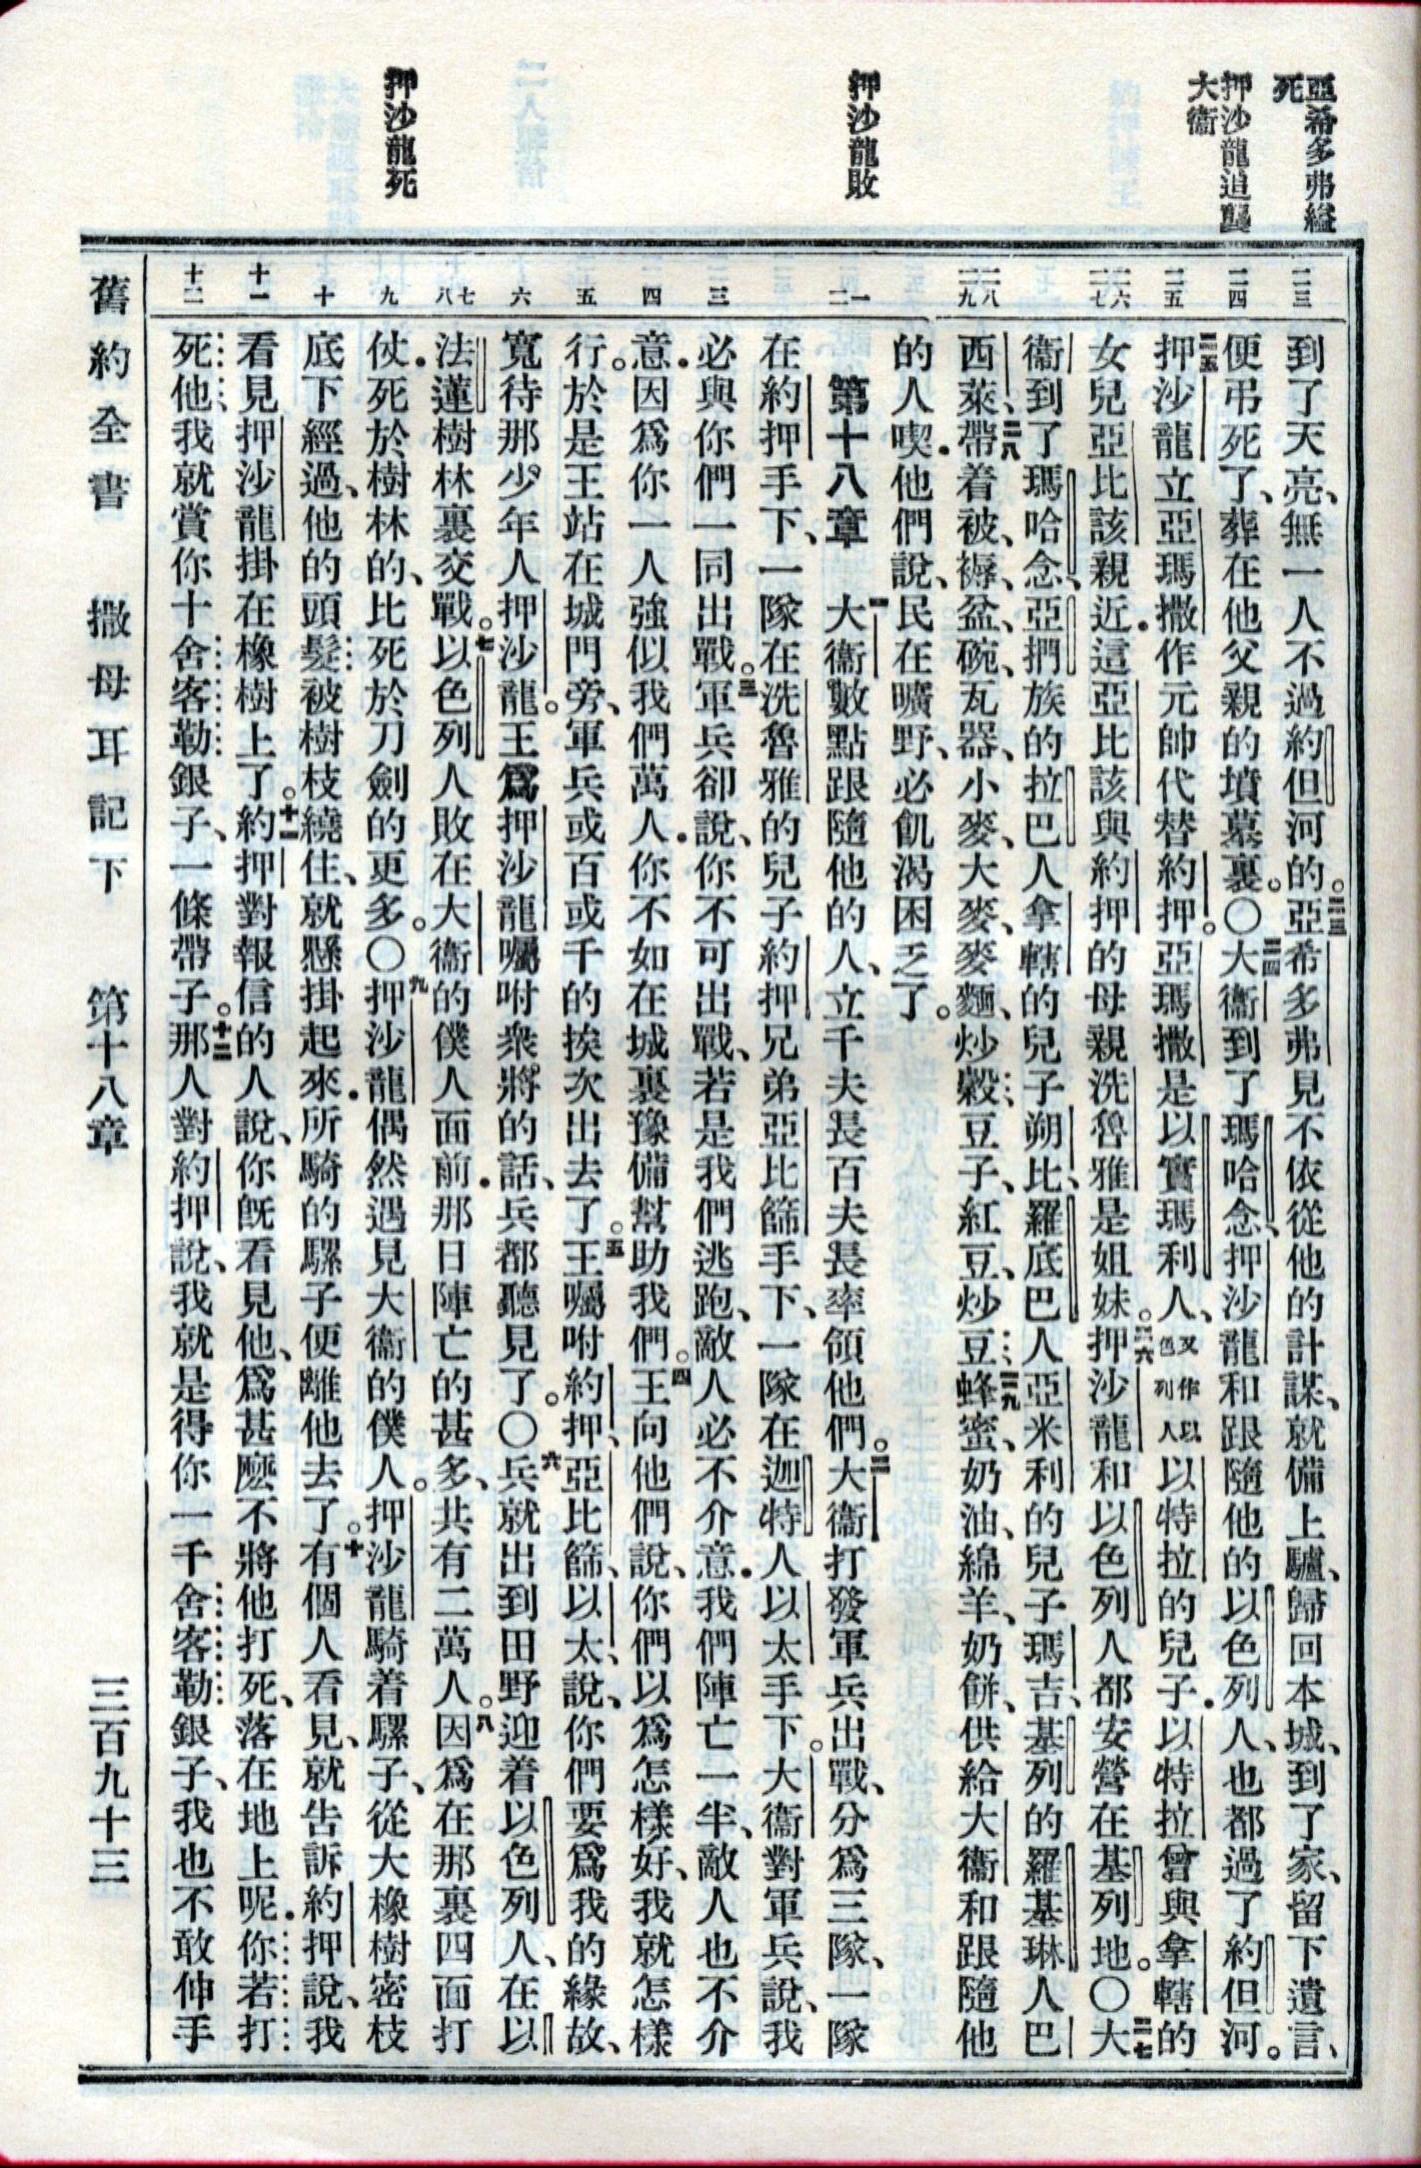 亞希多弗縊
死
押沙龍追襲
大衞
押沙龍敗
押沙龍死
二三
二四
二五
二六
二七
二八
二九
一
二
三
四
五
六
七
八
九
十
十一
十二
到了天亮、無一人不過約但河的。二三亞希多弗見不依從他的計謀、就備上驢、歸回本城、到了家、留下遺言、
便弔死了、葬在他父親的墳墓裏。〇二四大衞到了瑪哈念、押沙龍和跟隨他的以色列人、也都過了約但河。
二五押沙龍立亞瑪撒作元帥代替約押。亞瑪撒是以實瑪利人、又作以色列人以特拉的兒子．以特拉曾與拿轄的
女兒亞比該親近．這亞比該與約押的母親洗魯雅是姐妹。二六押沙龍和以色列人都安營在基列地。〇二七大
衞到了瑪哈念、亞捫族的拉巴人拿轄的兒子朔比、羅底巴人亞米利的兒子瑪吉、基列的羅基琳人巴
西萊、二八帶着被、褥、盆、碗、瓦器、小麥、大麥、麥麵、炒穀、豆子、紅豆、炒豆、二九蜂蜜、奶油、綿羊、奶餅、供給大衞和跟隨他
的人喫．他們說、民在曠野、必飢渴困乏了。
第十八章 一大衞數點跟隨他的人、立千夫長百夫長率領他們。二大衞打發軍兵出戰、分爲三隊、一隊
在約押手下、一隊在洗魯雅的兒子約押兄弟亞比篩手下、一隊在迦特人以太手下。大衞對軍兵說、我
必與你們一同出戰。三軍兵卻說、你不可出戰、若是我們逃跑、敵人必不介意．我們陣亡一半、敵人也不介
意．因爲你一人強似我們萬人．你不如在城裏豫備幫助我們。四王向他們說、你們以爲怎樣好、我就怎樣
行。於是王站在城門旁、軍兵或百或千的挨次出去了。五王囑咐約押、亞比篩、以太、說、你們要爲我的緣故、
寬待那少年人押沙龍。王爲押沙龍囑咐衆將的話、兵都聽見了。〇六兵就出到田野迎着以色列人、在以
法蓮樹林裏交戰。七以色列人敗在大衞的僕人面前．那日陣亡的甚多、共有二萬人。八因爲在那裏四面打
仗．死於樹林的、比死於刀劍的更多。〇九押沙龍偶然遇見大衞的僕人。押沙龍騎着騾子、從大橡樹密枝
底下經過、他的頭髮被樹枝繞住、就懸掛起來．所騎的騾子便離他去了。十有個人看見、就告訴約押說、我
看見押沙龍掛在橡樹上了。十一約押對報信的人說、你旣看見他、爲甚麽不將他打死、落在地上呢．你若打
死他、我就賞你十舍客勒銀子、一條帶子。十二那人對約押說、我就是得你一千舍客勒銀子、我也不敢伸手
舊約全書 撒母耳記下 第十八章 三百九十三